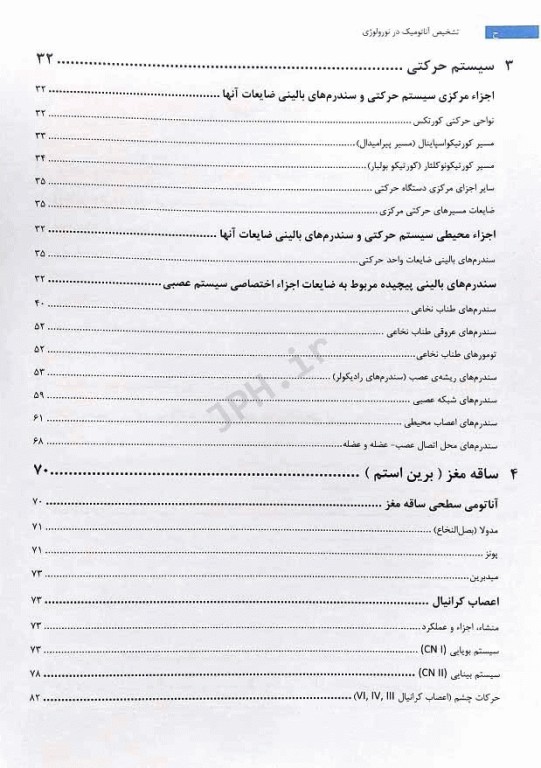 ج تشخیص آناتومیک در نورولوژی
۳ سیستم حرکتی ........ ۳۲
اجزاء مرکزی سیستم حرکتی و سندرم‌های بالینی ضایعات آنها ........ ۳۲
نواحی حرکتی کورتکس ........ ۳۲
مسیر کورتیکواسپاینال (مسیر پیرامیدال) ........ ۳۳
مسیر کورتیکونوکلئار (کورتیکو بولبار) ........ ۳۴
سایر اجزای مرکزی دستگاه حرکتی ........ ۳۵
ضایعات مسیرهای حرکتی مرکزی ........ ۳۵
اجزاء محیطی سیستم حرکتی و سندرم‌های بالینی ضایعات آنها ........ ۳۲
سندرم‌های بالینی ضایعات واحد حرکتی ........ ۳۵
سندرم‌های بالینی پیچیده مربوط به ضایعات اجزاء اختصاصی سیستم عصبی ........ ۳۲
سندرم‌های طناب نخاعی ........ ۴۰
سندرم‌های عروقی طناب نخاعی ........ ۵۲
تومورهای طناب نخاعی ........ ۵۲
سندرم‌های ریشه‌ی عصب (سندرم‌های رادیکولر) ........ ۵۳
سندرم‌های شبکه عصبی ........ ۵۹
سندرم‌های اعصاب محیطی ........ ۶۱
سندرم‌های محل اتصال عصب- عضله و عضله ........ ۶۸
۴ ساقه مغز ( برین استم ) ........ ۷۰
آناتومی سطحی ساقه مغز ........ ۷۰
مدولا (بصل‌النخاع) ........ ۷۱
پونز ........ ۷۱
میدبرین ........ ۷۳
اعصاب کرانیال ........ ۷۳
منشاء، اجزاء و عملکرد ........ ۷۳
سیستم بویایی (CN I) ........ ۷۳
سیستم بینایی (CN II) ........ ۷۸
حرکات چشم (اعصاب کرانیال VI, IV, III) ........ ۸۲
JPH.ir